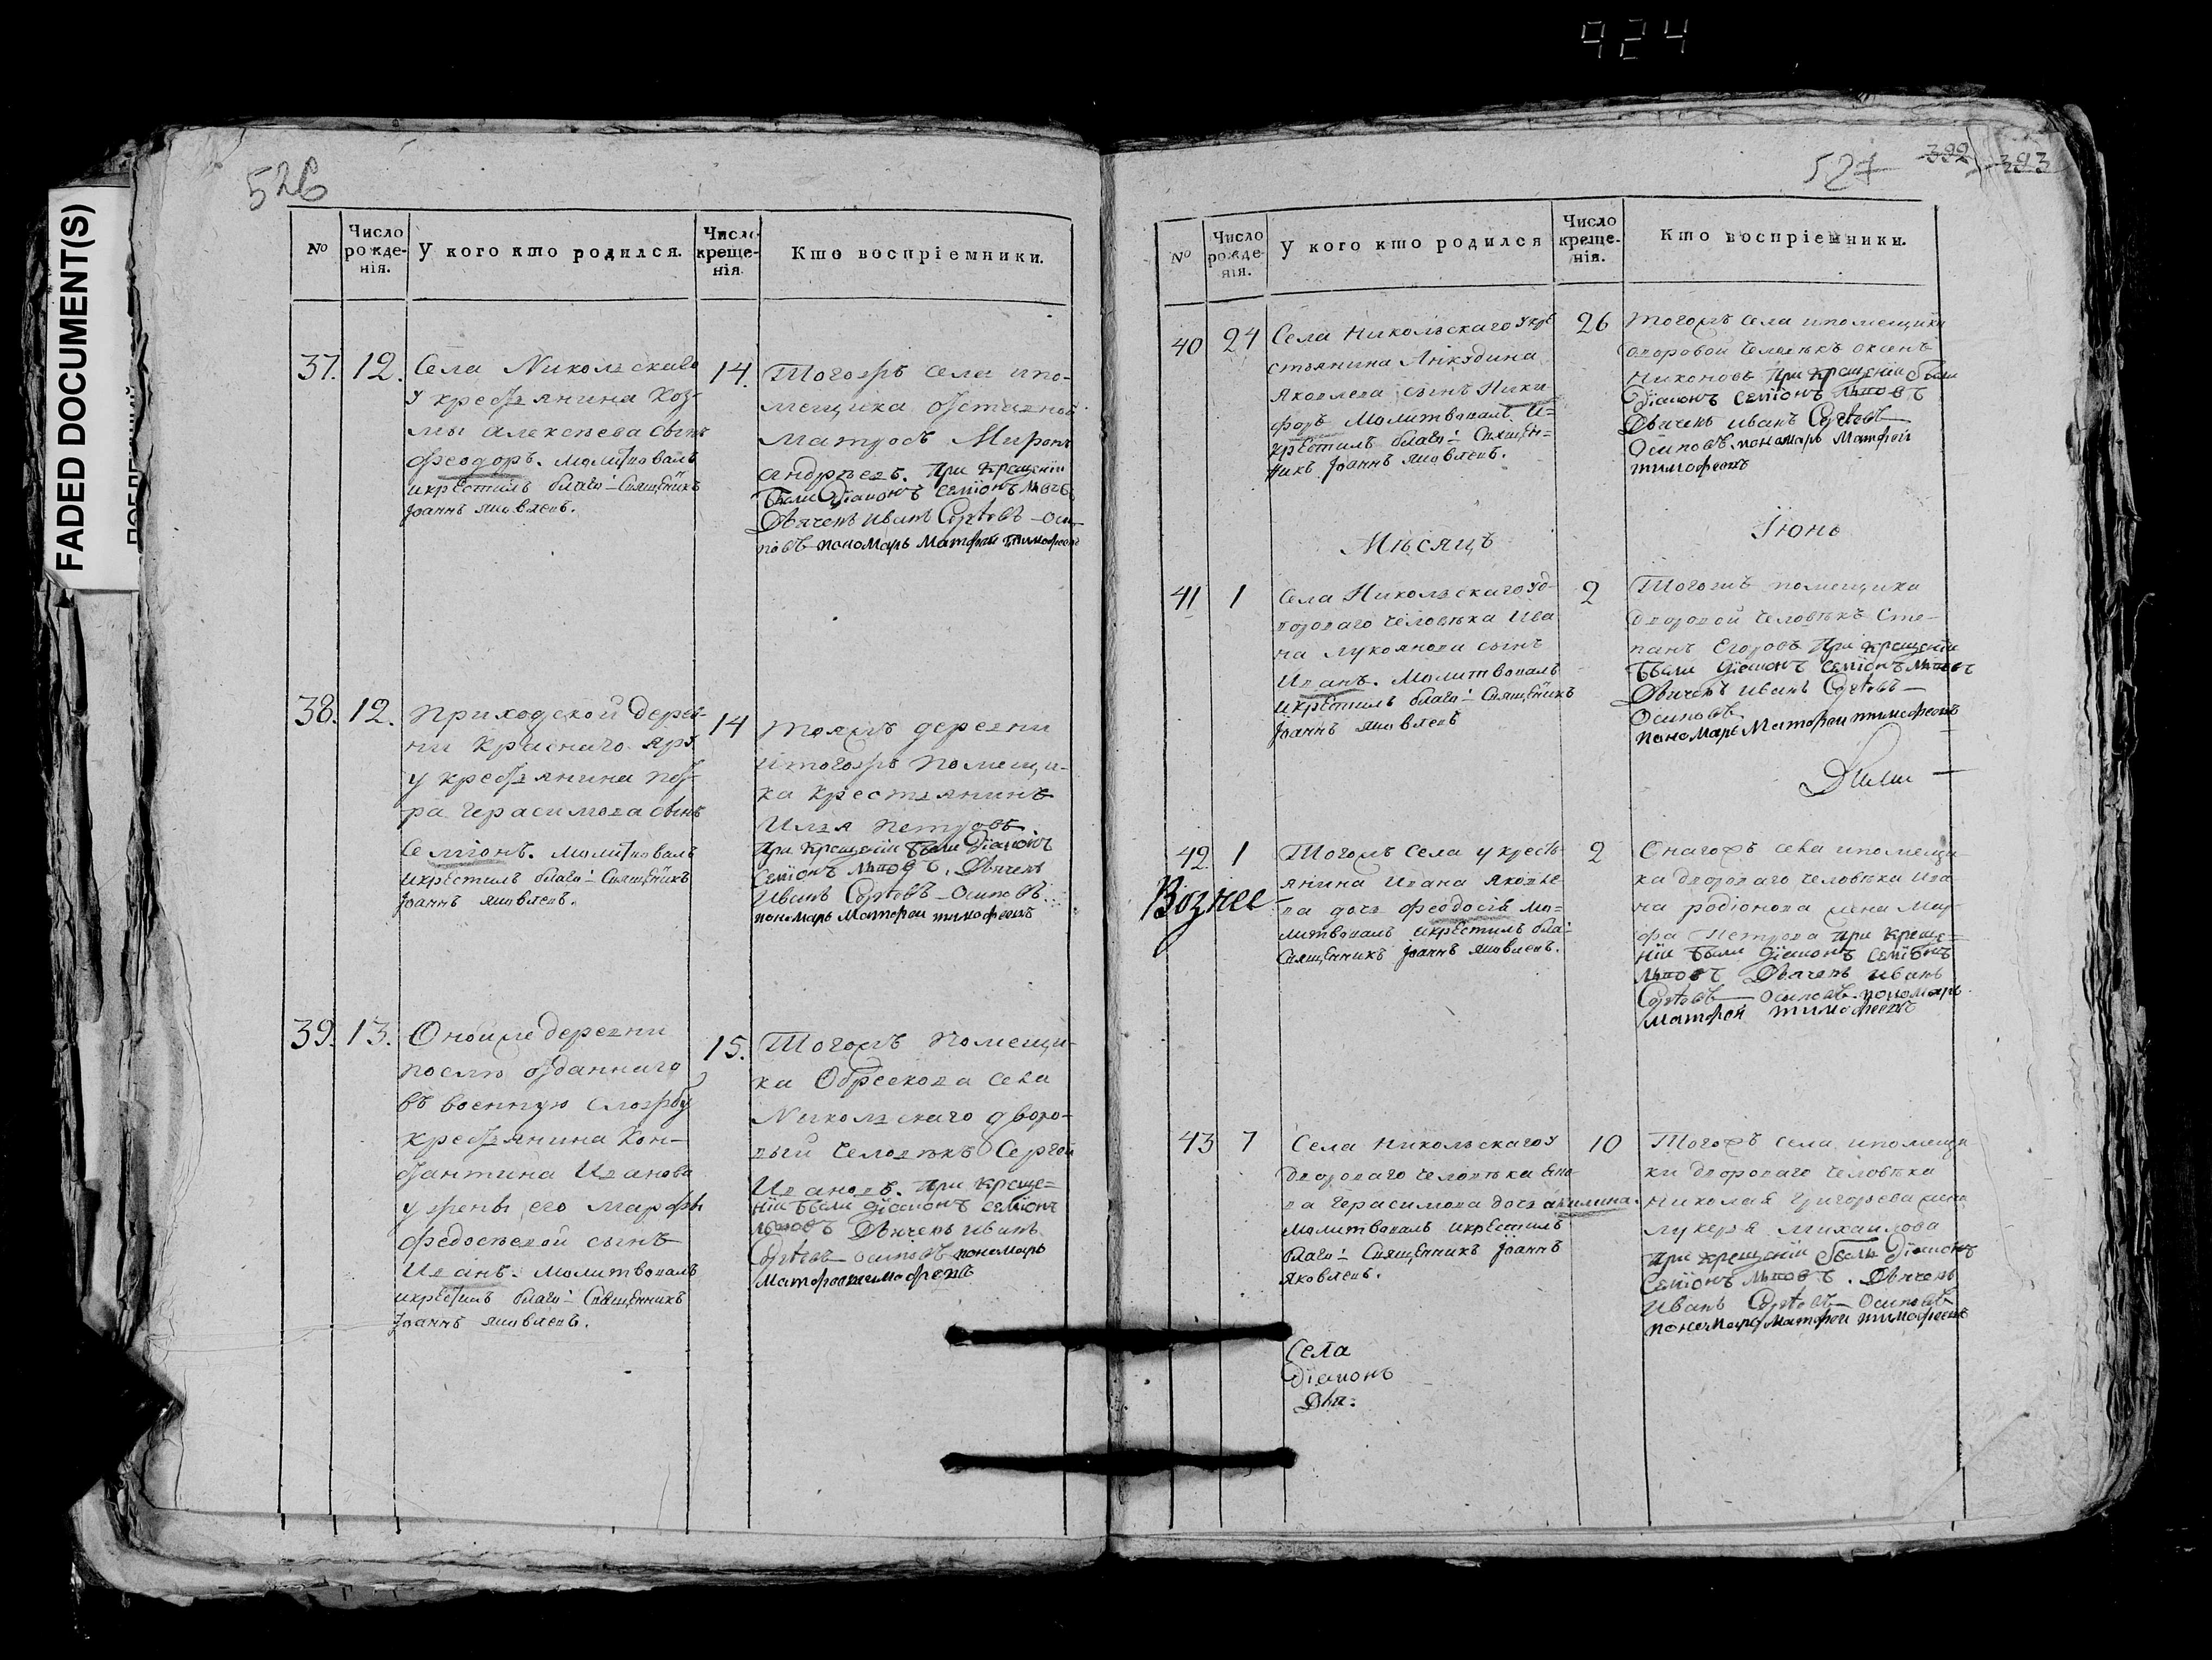 924
FADED DOCUMENT(S)
526
№
Число рожденія.
У кого кто родился.
Число крещенія.
Кто воспріемники.
37. 12.
Села Никольскаго
у крестьянина Коз-
мы Алексѣева сынъ
Феодоръ. молитвовалъ
икрестилъ благо: Священикъ
Іоаннъ яковлевъ.
14.
Тогожъ села ипо-
мещика отставной
матросъ Миронъ
андрѣевъ. при крещеніи
были Діаконъ Семіонъ Львовъ
Дьячекъ иванъ Сергѣевъ Оси-
повъ пономарь Матфей тимофеевъ
38. 12.
Приходской дерев-
ни Краснаго яру
у крестьянина пет-
ра Герасимова сынъ
Семіонъ. молитвовалъ
икрестилъ благо: Священикъ
Іоаннъ яковлевъ.
14
тояжъ деревни
итогожъ помещи-
ка крестьянинъ
Илья петровъ
при крещеніи были Діаконъ
Семіонъ Львовъ. Дьячекъ
иванъ Осиповъ.
пономарь Матфеи тимофеевъ
39. 13.
Оной же деревни
послѣ отданнаго
въ военную службу
крестьянина Кон-
стантина Иванова
у жены его марфы
федосѣевой сынъ
Иванъ. молитвовалъ
икрестилъ благо: Священникъ
Іоаннъ яковлевъ.
15.
Тогожъ помещи-
ка Обрескова села
Никольскаго дворо-
вый человѣкъ Сергей
Ивановъ. при креще-
ніи были діаконъ семіонъ
львовъ Дьячекъ иванъ
осиповъ пономарь
Матфеи тимофеевъ
527 392 393
№
Число рожденія.
У кого кто родился
Число крещенія.
Кто воспріемники.
40 24
Села Никольскаго у кре
стьянина
яковлева сынъ Ники-
форъ молитвовалъ И=
крестилъ благо: Священ=
никъ Іоаннъ яковлевъ.
26
тогожъ села ипомещика
дворовой человѣкъ
никоновъ при крещеніи были
Діаконъ семіонъ львовъ
Дьячекъ иванъ
Осиповъ пономарь Матфей
тимофеевъ
Мѣсяцъ Іюнь
41 1
Села Никольскаго у д-
вороваго человѣка Ива
на лукоянова сынъ
Иванъ. молитвовалъ
икрестилъ благо: Священикъ
Іоаннъ яковлевъ
2
Тогожъ помещика
дворовой человѣкъ Сте-
панъ Егоровъ при крещеніи
были діаконъ Семіонъ львовъ
Дьячекъ иванъ
Осиповъ
пономарь Матфеи тимофеевъ
42 1
Вознес-
Тогожъ села у кресть-
янина Ивана яковле-
ва дочь феодосія мо=
литвовалъ икрестилъ бла:
Священникъ Іоаннъ яковлевъ.
2
Онагожъ села ипомещи-
ка двороваго человѣка ива
на родіонова жена мар-
фа петрова при креще-
ніи были діаконъ семіонъ
львовъ Дьячекъ иванъ
осиповъ пономарь
матфей тимофеевъ
43 7
Села никольскаго у
двороваго человѣка
Герасимова дочь акилина.
молитвовалъ икрестилъ
благо: Священникъ Іоаннъ
яковлевъ.
10
Тогожъ села ипомещи
ка двороваго человѣка
николая григорьева жена
лукерья михаилова
при крещеніи были діаконъ
Семіонъ львовъ. Дьячекъ
иванъ осиповъ
пономарь матфеи тимофеевъ
Села
Діаконъ
Дья: